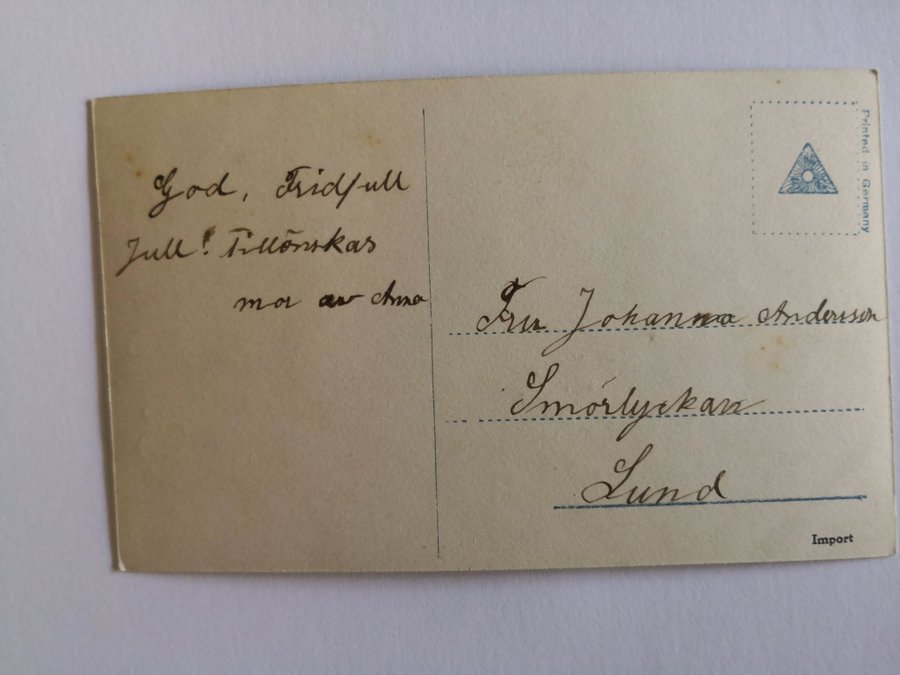 God, Fridfull
Jull! Tillönskas
mor av Anna
Printed in Germany
Fru Johanna Andersson
Smörlyckan
Lund
Import